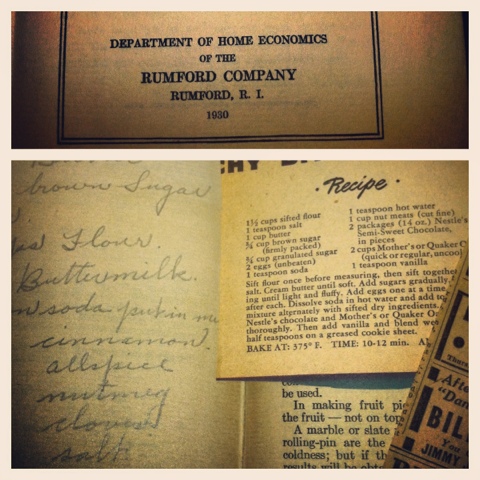 DEPARTMENT OF HOME ECONOMICS
OF THE
RUMFORD COMPANY
RUMFORD, R. I.
1930
brown Sugar
Flour.
Buttermilk.
soda put in
cinnamon.
allspice
nutmeg
cloves
salt
Recipe
1½ cups sifted flour
1 teaspoon salt
1 cup butter
¾ cup brown sugar
(firmly packed)
¾ cup granulated sugar
2 eggs (unbeaten)
1 teaspoon soda
1 teaspoon hot water
1 cup nut meats (cut fine)
2 packages (14 oz.) Nestle's
Semi-Sweet Chocolate,
in pieces
2 cups Mother's or Quaker O
(quick or regular, uncoo
1 teaspoon vanilla
Sift flour once before measuring, then sift together
salt. Cream butter until soft. Add sugars gradually
ing until light and fluffy. Add eggs one at a time,
after each. Dissolve soda in hot water and add to
mixture alternately with sifted dry ingredients.
Nestle's chocolate and Mother's or Quaker O
thoroughly. Then add vanilla and blend we
half teaspoons on a greased cookie sheet.
BAKE AT: 375° F. TIME: 10-12 min.
be used.
In making fruit pie
the fruit — not on top
A marble or slate
rolling-pin are the
coldness; but if th
results will be obt
After
"Dan
BIL
You
JIMMY